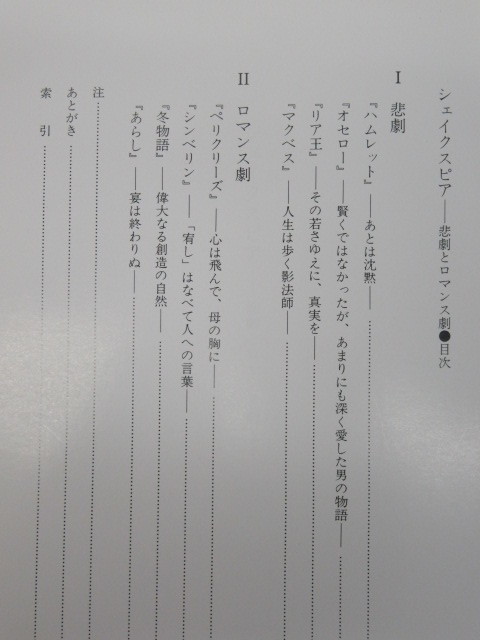 シェイクスピア——悲劇とロマンス劇●目次
I 悲劇
『ハムレット』——あとは沈黙——
『オセロー』——賢くではなかったが、あまりにも深く愛した男の物語——
『リア王』——その若さゆえに、真実を——
『マクベス』——人生は歩く影法師——
II ロマンス劇
『ペリクリーズ』——心は飛んで、母の胸に——
『シンベリン』——「宥し」はなべて人への言葉——
『冬物語』——偉大なる創造の自然——
『あらし』——宴は終わりぬ——
注
あとがき
索引